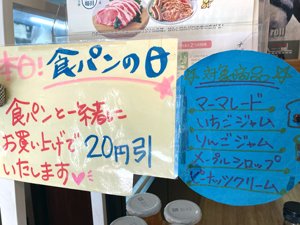 本日!食パンの日
食パンと一緒に
お買い上げで20円引
いたします
☆対象商品☆
マーマレード
いちごジャム
りんごジャム
メープルシロップ
ピーナッツクリーム